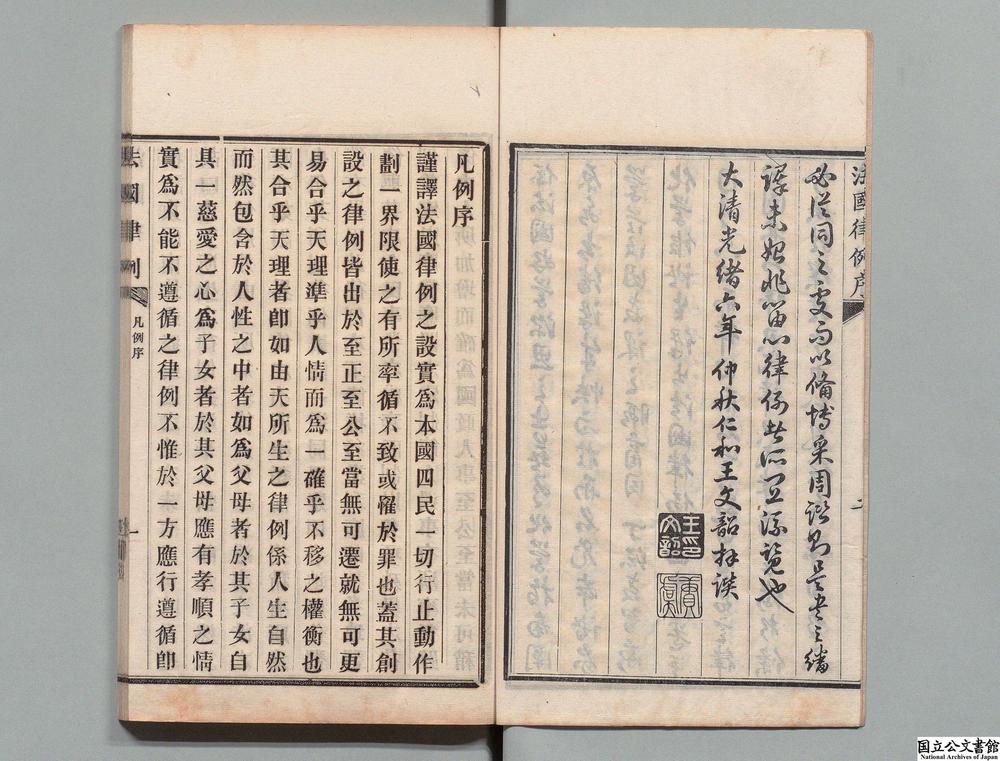 法國律例序
必從同之更而以備博采周諮則是書之繙
譯未始非留心律例者所宜流覽也
大清光緒六年仲秋仁和王文韶拜譔
王文韶
凡例序
謹譯法國律例之設實爲本國四民一切行止動作
劃一界限使之有所率循不致或罹於罪也蓋其創
設之律例皆出於至正至公至當無可遷就無可更
易合乎天理準乎人情而爲一確乎不移之權衡也
其合乎天理者卽如由天所生之律例係人生自然
而然包含於人性之中者如爲父母者於其子女自
具一慈愛之心爲子女者於其父母應有孝順之情
實爲不能不遵循之律例不惟於一方應行遵循卽
法國律例
凡例序
一
国立公文書館
National Archives of Japan